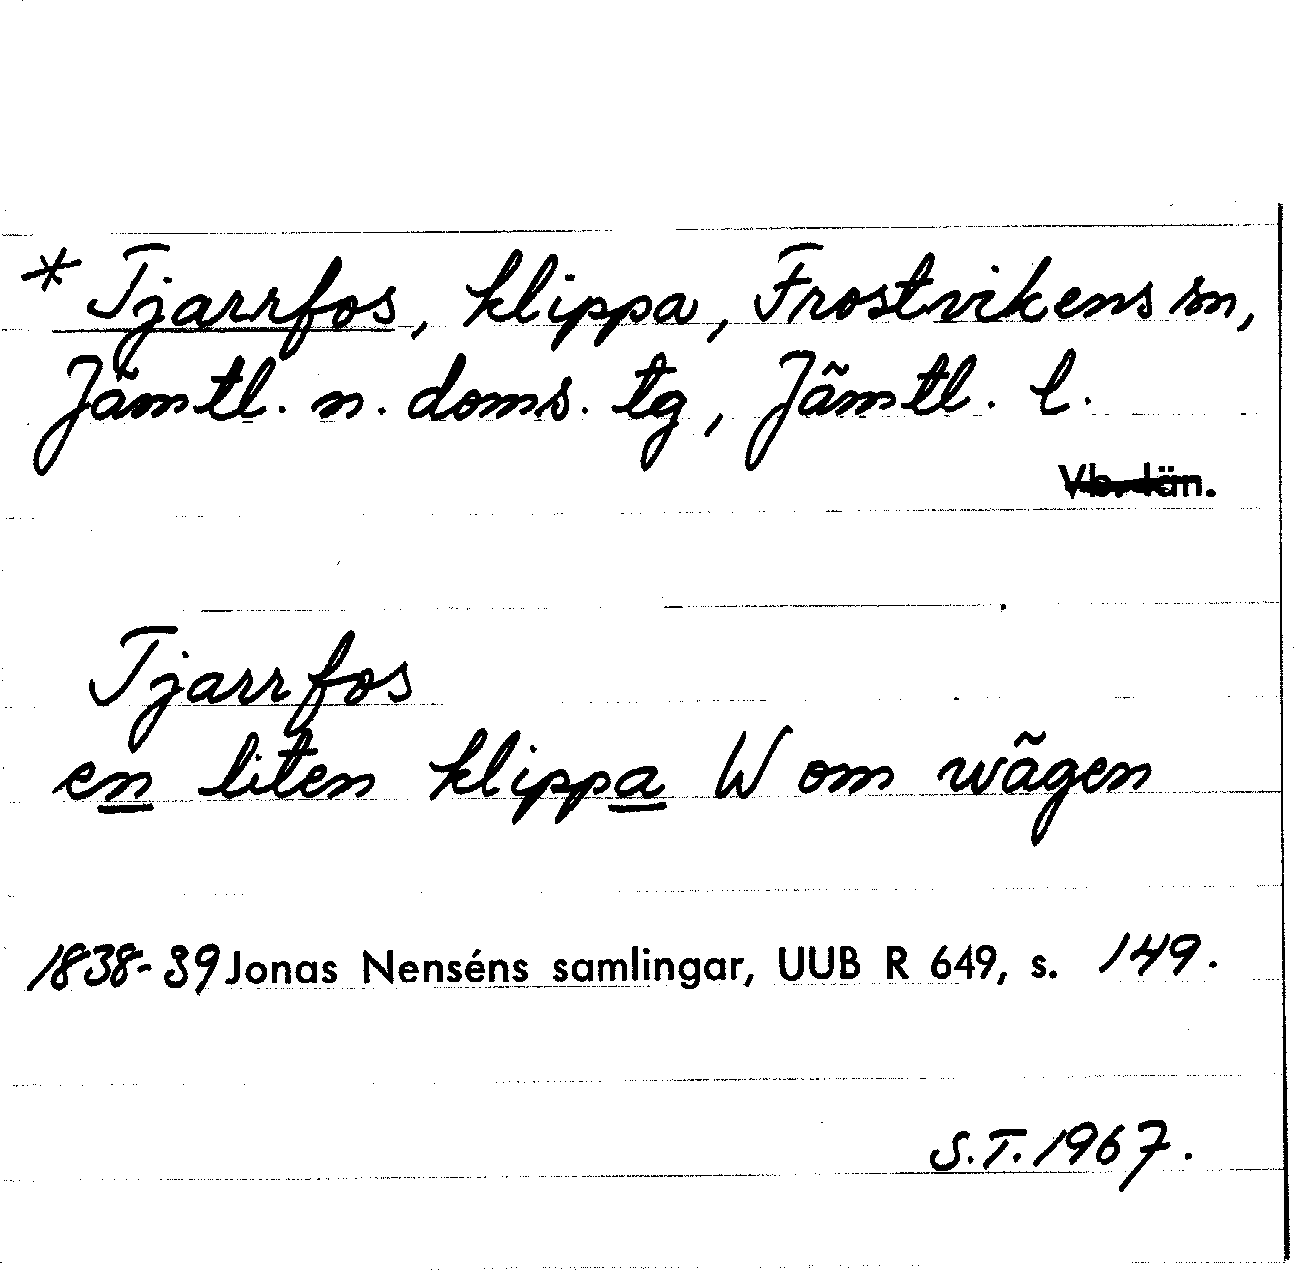 * Tjarrfos, klippa, Frostvikens sn,
Jämtl. n. doms. tg, Jämtl. l.
Vb. län.
Tjarrfos
en liten klippa W om wägen
1838-39 Jonas Nenséns samlingar, UUB R 649, s. 149.
S.T. 1967.